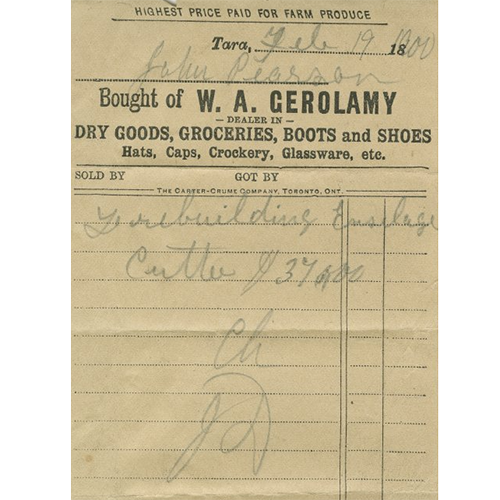 HIGHEST PRICE PAID FOR FARM PRODUCE
Tara, Feb 19 18 1900
John Pearson
Bought of W. A. GEROLAMY
— DEALER IN —
DRY GOODS, GROCERIES, BOOTS and SHOES
Hats, Caps, Crockery, Glassware, etc.
SOLD BY GOT BY
THE CARTER-CRUME COMPANY, TORONTO, ONT.
To rebuilding Ensilage
Cutter $37.00